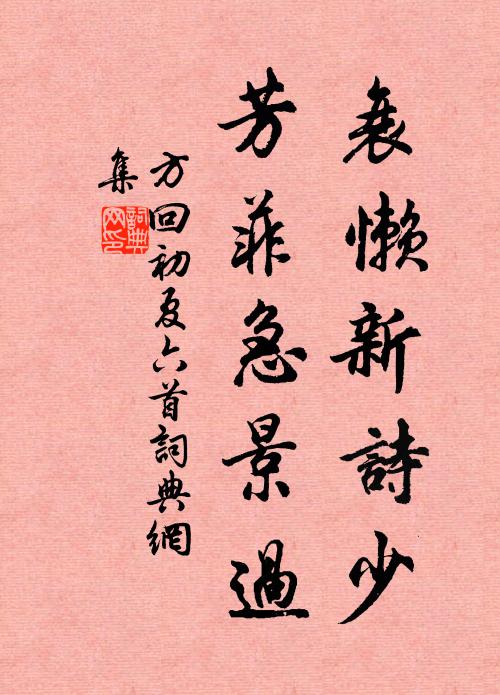 衰懶新詩少
芳菲急景過
方回初夏六首詞典網
集
詞典
网印